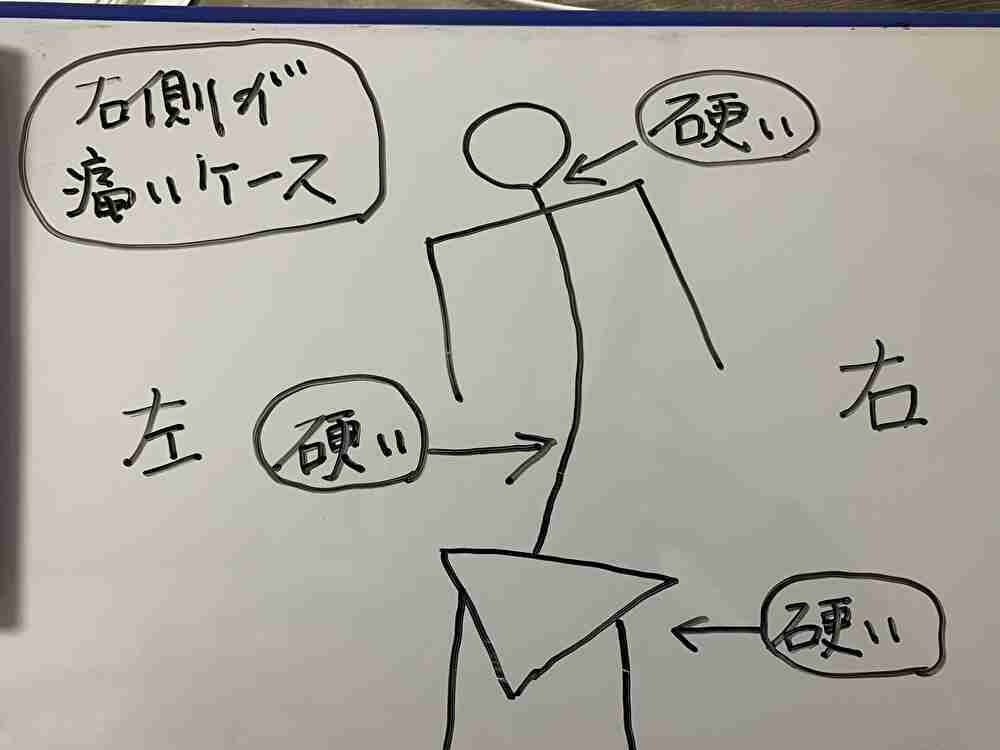 右側が
痛いケース
硬い
左
硬い
右
硬い